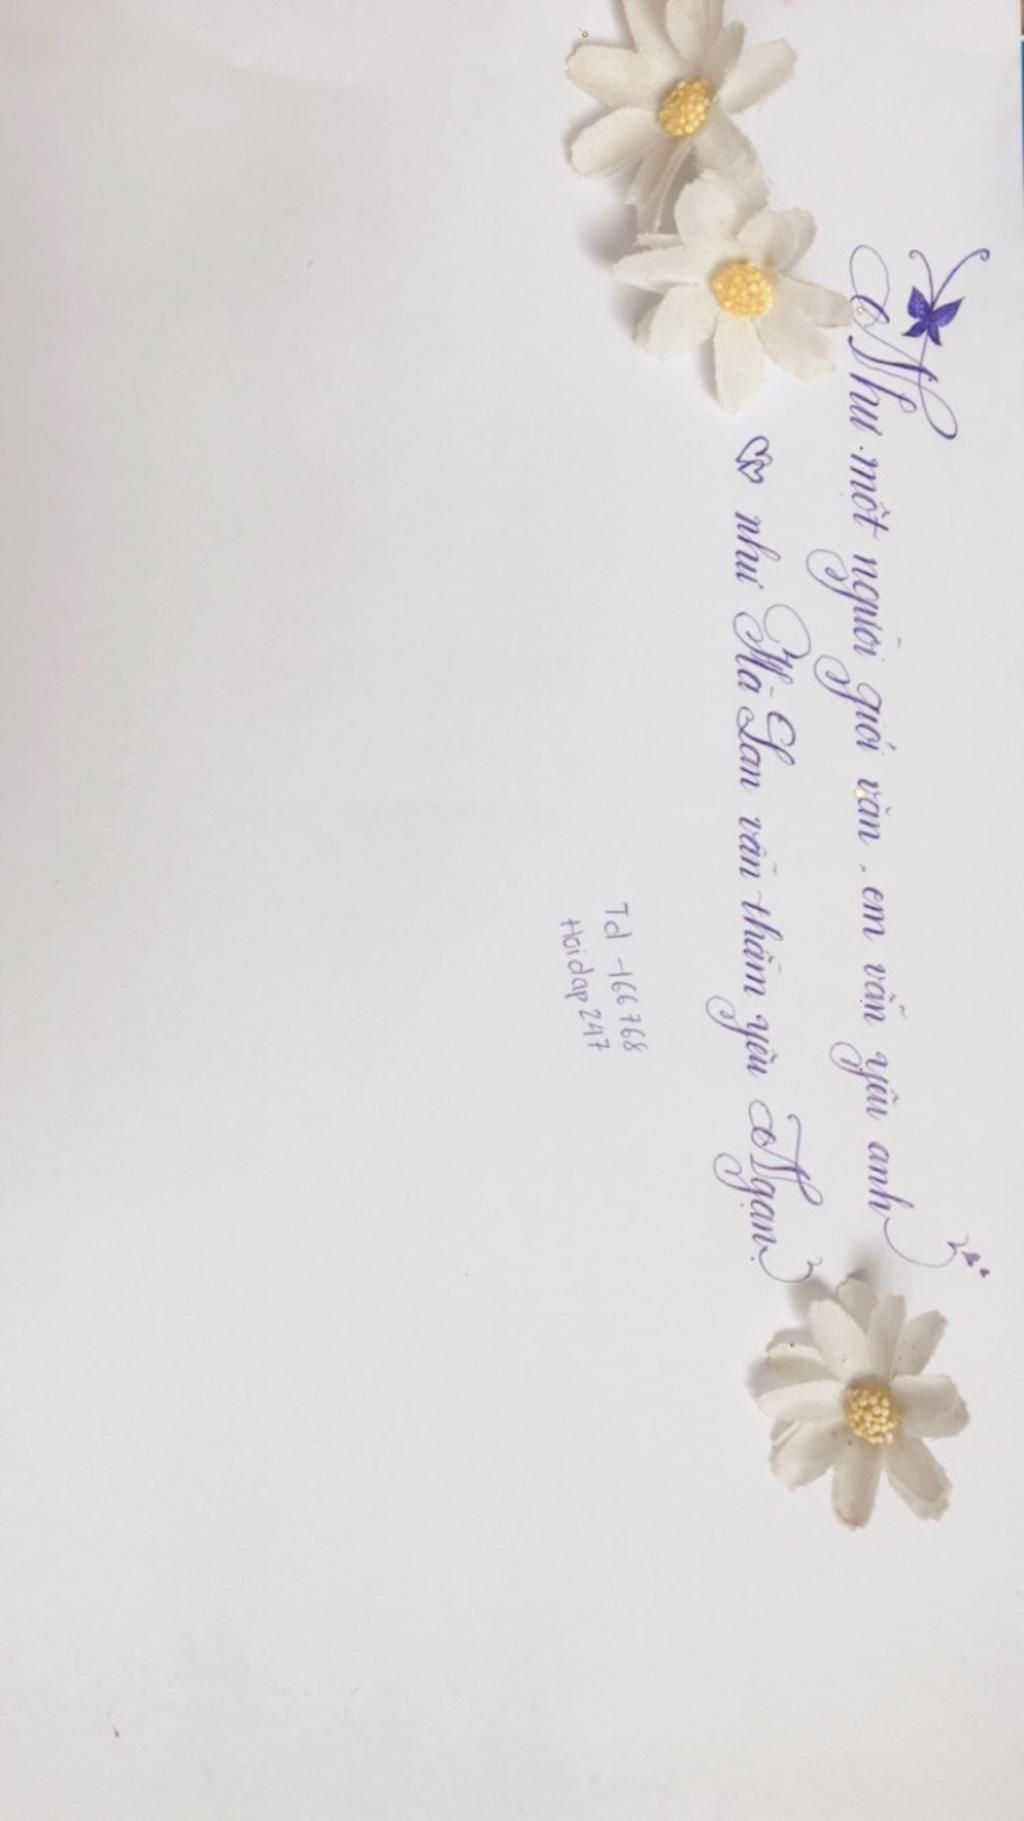 Như một người giỏi văn, em vẫn yêu anh
như Hà Lan vẫn thầm yêu Ngạn.
Td -166768
Hoidap247